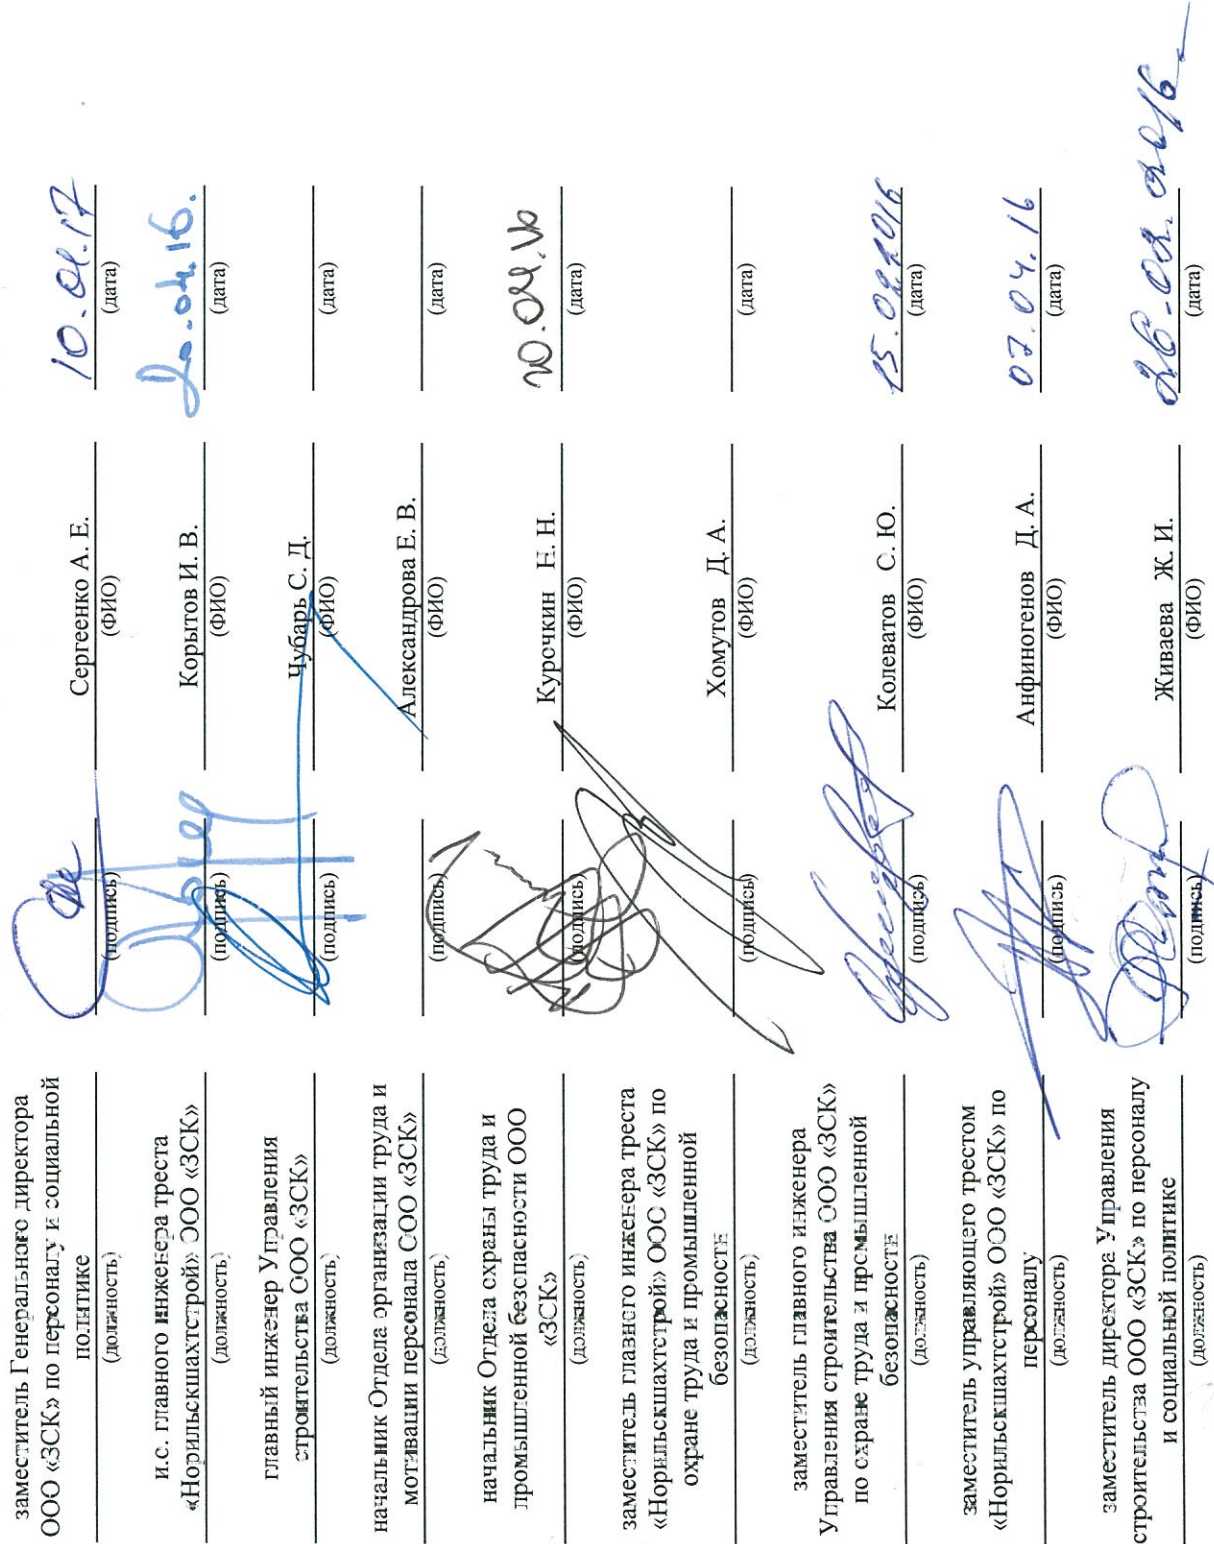 заместитель Генерального директора
ООО «ЗСК» по персоналу и социальной
политике Сергеенко А. Е. 10.01.17
(должность) (подпись) (ФИО) (дата)
и.с. главного инженера треста
«Норильскшахтстрой» ООО «ЗСК» Корытов И. В. 20.04.16.
(должность) (подпись) (ФИО) (дата)
главный инженер Управления
строительства ООО «ЗСК» Чубарь С. Д.
(должность) (подпись) (ФИО) (дата)
начальник Отдела организации труда и
мотивации персонала ООО «ЗСК» Александрова Е. В.
(должность) (подпись) (ФИО) (дата)
начальник Отдела охраны труда и
промышленной безопасности ООО
«ЗСК» Курочкин Н. Н. 20.04.16
(должность) (подпись) (ФИО) (дата)
заместитель главного инженера треста
«Норильскшахтстрой» ООО «ЗСК» по
охране труда и промышленной
безопасности Хомутов Д. А.
(должность) (подпись) (ФИО) (дата)
заместитель главного инженера
Управления строительства ООО «ЗСК»
по охране труда и промышленной
безопасности Колеватов С. Ю.
(должность) (подпись) (ФИО) (дата)
заместитель управляющего трестом
«Норильскшахтстрой» ООО «ЗСК» по
персоналу Анфиногенов Д. А. 07.04.16
(должность) (подпись) (ФИО) (дата)
заместитель директора Управления
строительства ООО «ЗСК» по персоналу
и социальной политике Живаева Ж. И.
(должность) (подпись) (ФИО) (дата)